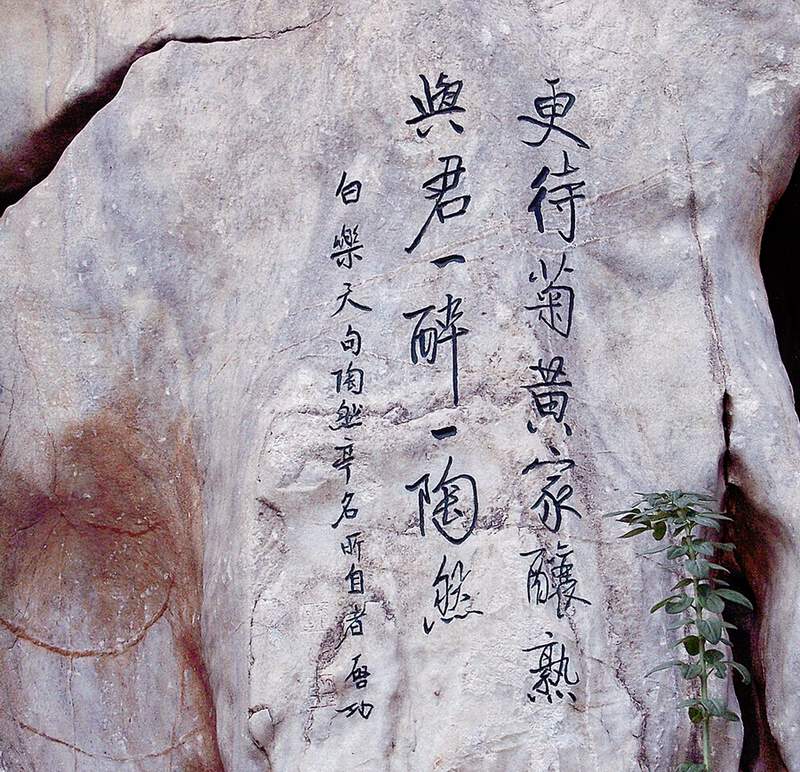 更待菊黃家釀熟
與君一醉一陶然
白樂天句陶然亭名所自者 啓功